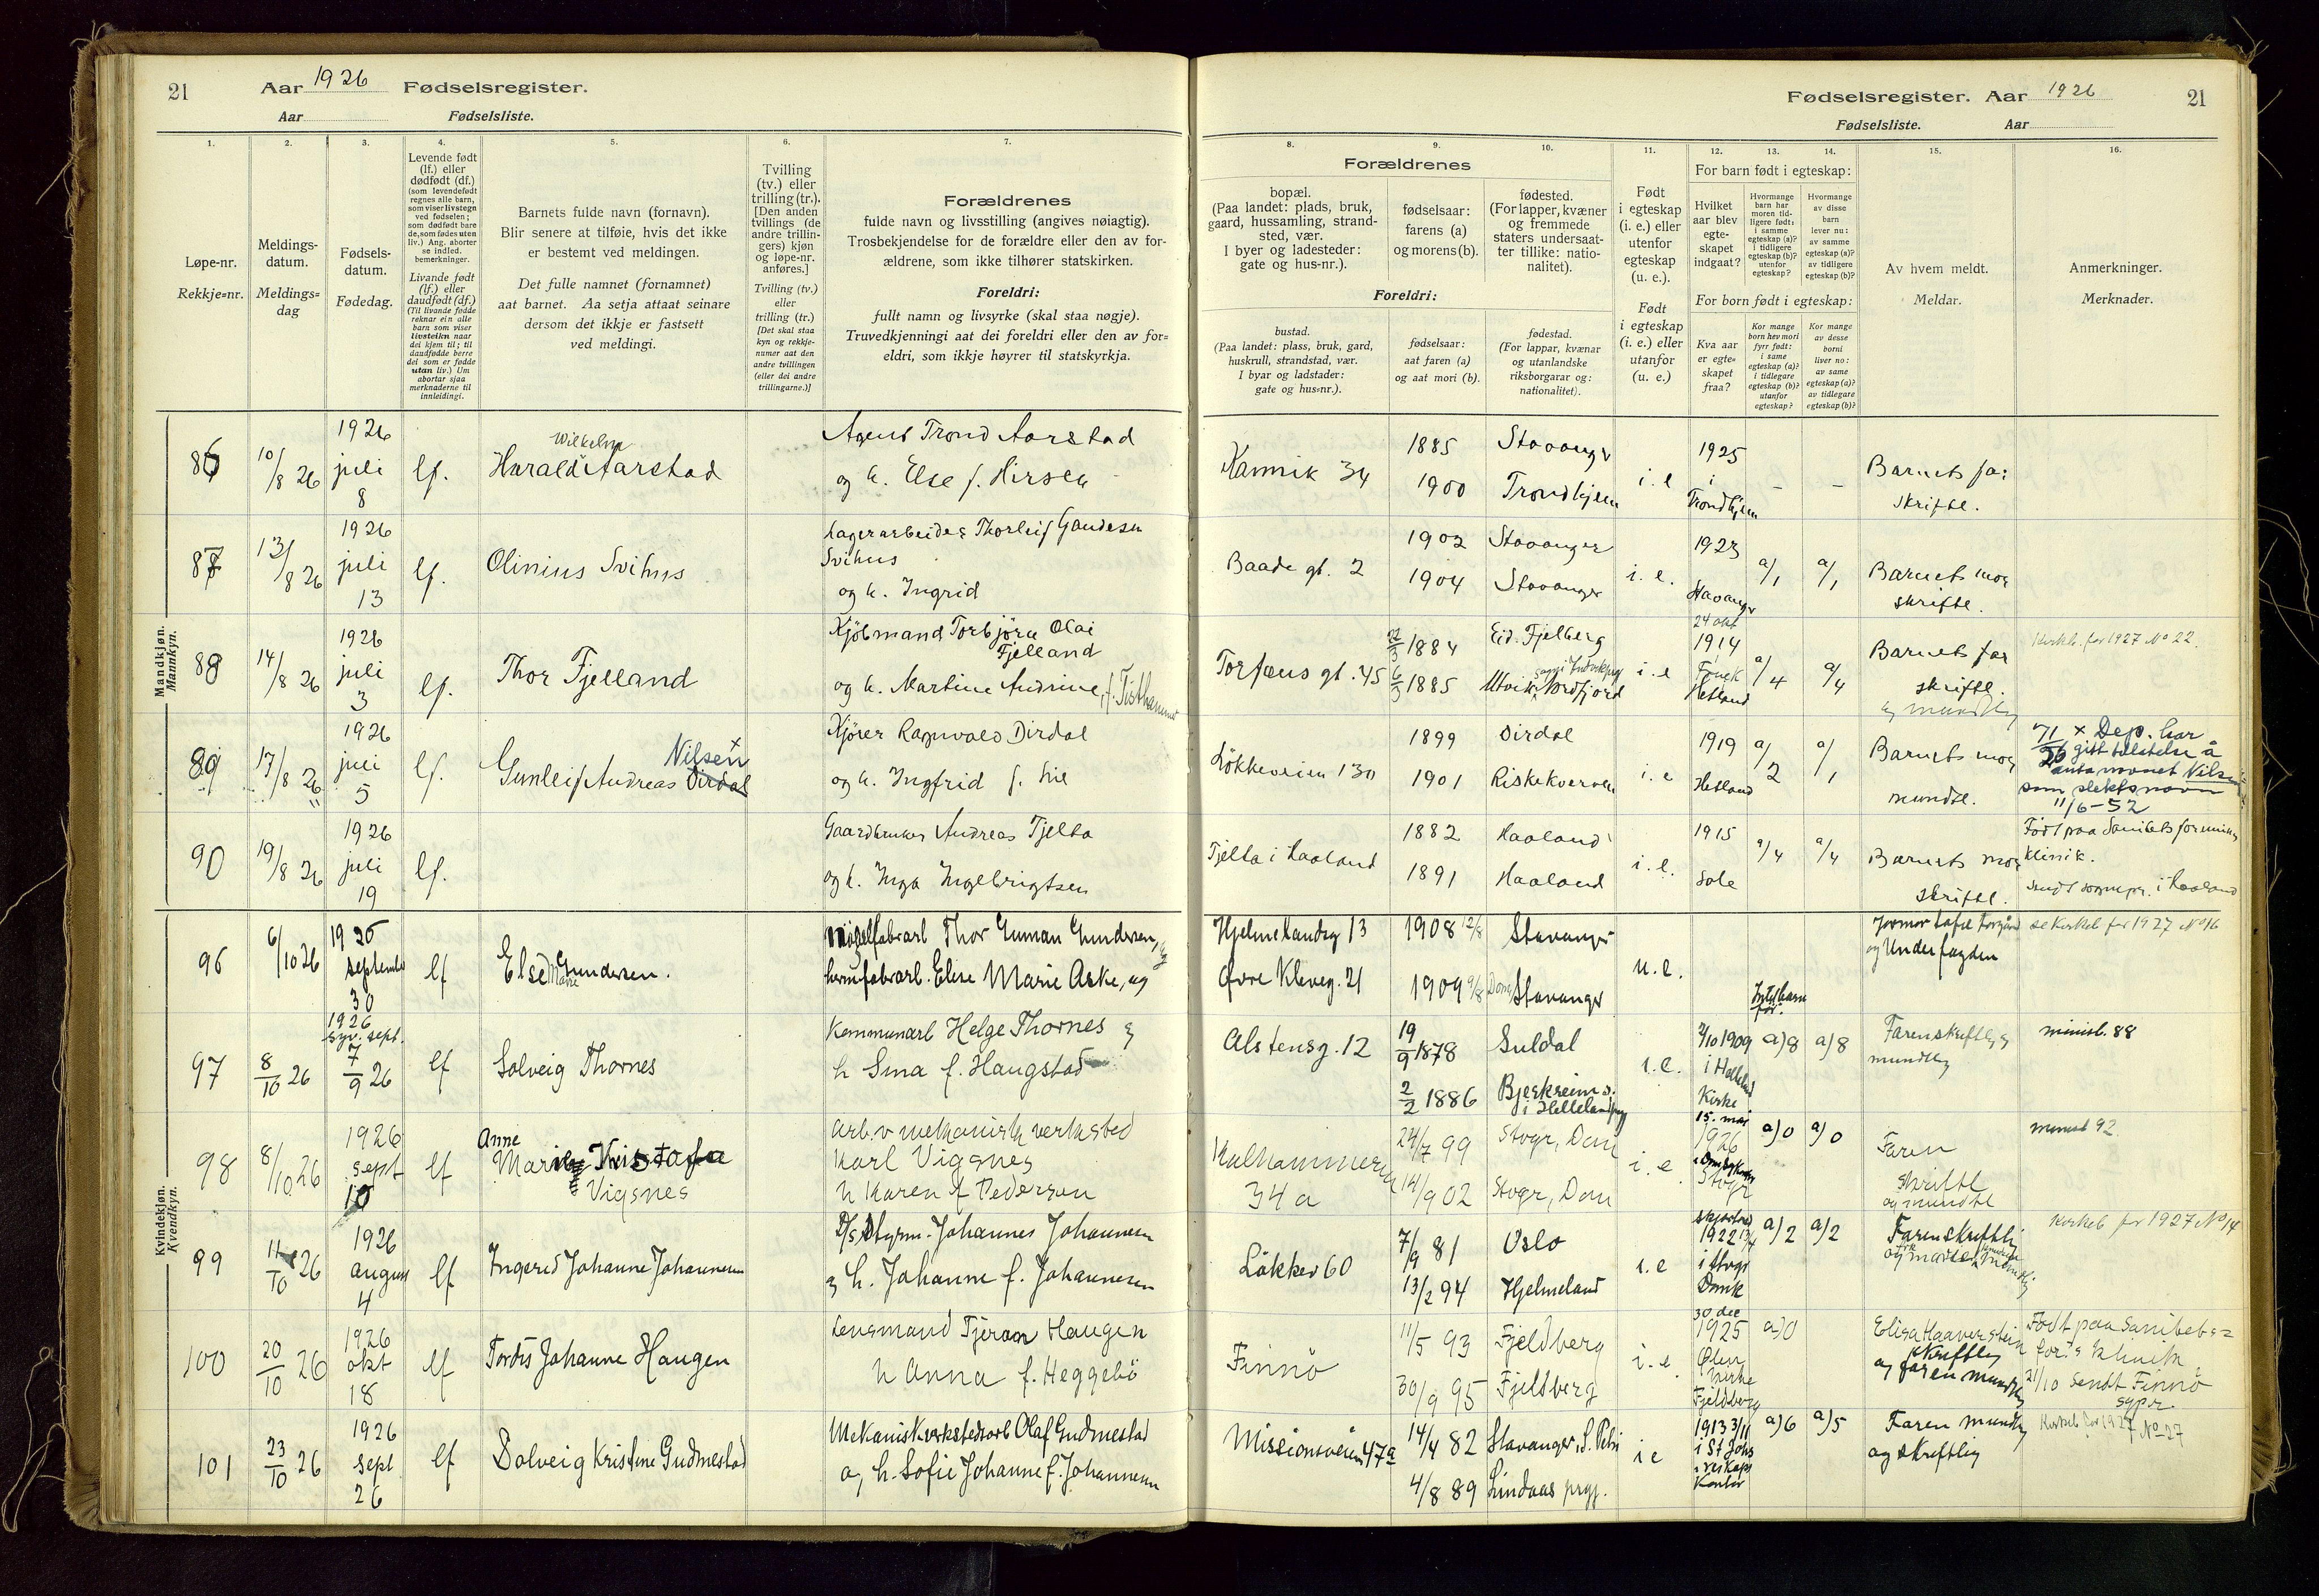 21
Aar 1926 Fødselsregister.
Aar Fødselsliste.
Fødselsregister. Aar 1926
21
Fødselsliste. Aar
1.
2.
3.
4.
5.
6.
7.
8.
9.
10.
11.
12.
13.
14.
15.
16.
Løpe-nr.
Rekkje-nr.
Meldings-
datum.
Meldings-
dag
Fødsels-
datum.
Fødedag.
Levende født
(lf.) eller
dødfødt (df.)
(som levendefødt
regnes alle barn,
som viser livstegn
ved fødselen;
som dødfødt bare
de, som fødes uten
liv.) Ang. aborter
se indled.
bemerkninger.
Livande født
(lf.) eller
daudfødt (df.)
(Til livande fødde
reknar ein alle
barn som viser
livsteikn naar
dei kjem til; til
daudfødde berre
dei som er fødde
utan liv.) Um
abortar sjaa
merknaderne til
innleidingi.
Barnets fulde navn (fornavn).
Blir senere at tilføie, hvis det ikke
er bestemt ved meldingen.
Det fulle namnet (fornamnet)
aat barnet. Aa setja attaat seinare
dersom det ikkje er fastsett
ved meldingi.
Tvilling
(tv.) eller
trilling (tr.).
[Den anden
tvillings (de
andre trillin-
gers) kjøn
og løpe-nr.
anføres.]
Tvilling (tv.)
eller
trilling (tr.)
[Det skal staa
kyn og rekkje-
numer aat den
andre tvillingen
(eller dei andre
trillingarne.)]
Forældrenes
fulde navn og livsstilling (angives nøiagtig).
Trosbekjendelse for de forældre eller den av for-
ældrene, som ikke tilhører statskirken.
Foreldri:
fullt namn og livsyrke (skal staa nøgje).
Truvedkjenningi aat dei foreldri eller den av for-
eldri, som ikkje høyrer til statskyrkja.
Forældrenes
bopæl.
(Paa landet: plads, bruk,
gaard, hussamling, strand-
sted, vær.
I byer og ladesteder:
gate og hus-nr.).
fødselsaar:
farens (a)
og morens (b).
fødested.
(For lapper, kvæner
og fremmede
staters undersaat-
ter tillike: natio-
nalitet).
Foreldri:
bustad.
(Paa landet: plass, bruk, gard,
huskrull, strandstad, vær.
I byar og ladstader:
gate og hus-nr.).
fødselsaar:
aat faren (a)
og aat mori (b).
fødestad.
(For lappar, kvænar
og utanlandske
riksborgarar og:
nationalitet).
Født
i egteskap
(i. e.) eller
utenfor
egteskap
(u. e.).
Født
i egteskap
(i. e.) eller
utanfor
(u. e.)
For barn født i egteskap:
Hvilket
aar blev
egte-
skapet
indgaat?
Hvormange
barn har
moren tid-
ligere født:
i samme
egteskap (a)?
i tidligere
egteskap (b)?
utenfor
egteskap?
Hvormange
av disse
barn
lever nu:
av samme
egteskap (a)?
av tidligere
egteskap (b)?
For born født i egteskap:
Kva aar
er egte-
skapet
fraa?
Kor mange
born hev mori
fyrr født:
i same
egteskap (a)?
i tidlegare
egteskap (b)?
utanfor
egteskap?
Kor mange
av desse
borni
liver no:
av same
egteskap (a)?
av tidlegare
egteskap (b)?
Av hvem meldt.
Meldar.
Anmerkninger.
Merknader.
Mandkjøn.
Mannkyn.
86 10/8 26 1926 juli 8 lf. Harald Wilhelm Aarstad
Agent Trond Aarstad
og h. Else f. Hirsch
Kannik 34 1885 Stavanger 1925
1900 Trondhjem i. e i Trondhjem - -
Barnets far
skriftl.
87 13/8 26 1926 juli 13 lf. Olinius Svihus
Lagerarbeider Thorleif Gaudesen
Svihus
og h. Ingrid
Baade gt. 2 1902 Stavanger 1923
1904 Stavanger i. e. Stavanger a/1 a/1
Barnets mor
skriftl.
88 14/8 26 1926 juli 3 lf. Thor Fjelland
Kjöbmand Torbjörn Olai
Fjelland
og h. Martine Andrine, f. Tisthammer
Torfæus gt. 45 22/3 1884 Eid. Fjelberg 24 okt 1914
6/3 1885 Utvik Nordfjord i. e Hetland a/4 a/4
Barnets far
skriftl.
og mundtlig
Kirkeb. for 1927 No 22.
89 17/8 26 1926 juli 5 lf. Gunleif Andreas Dirdal Nilsen x
Kjörer Ragnvald Dirdal
og h. Ingfrid f.
Lökkeveien 130 1899 Dirdal 1919
1901 Riskekvernen i. e Hetland a/2 a/1
Barnets mor
mundtl.
x Dep. har
gitt tillatelse å
anta navnet Nilsen
som slektsnavn
11/6-52
90 19/8 26 1926 juli 19 lf.
Gaardbruker Andreas Tjelta
og h. Inga Ingebrigtsen
Tjelta i Haaland 1882 Haaland 1915
1891 Haaland i. e. Sole a/4 a/4
Barnets mor
skriftl.
Født paa Sanitetsforenings
klinik.
Sendt sognepr. i Haaland
Kvindekjøn.
Kvendkyn.
96 6/10 26 1926 september 30 lf Else Marie Gundersen.
Thor Gunnar Gundersen, og
Elise Marie Aske, og
Hjelmelandsg 13 1908 12/8 Stavanger
Øvre Kleveg. 21 1909 9/8 Dom Stavanger u. e.
se Kirkeb for 1927 No 16
97 8/10 26 1926 syv. sept. 7/9 26 lf Solveig Thornes
Kommunearb Helge Thornes &
h Sina f. Haugstad
Alstensg. 12 19/9 1878 Suldal
2/2 1886 Bjerkreim s. i Hellelandprg i. e.
2/10 1909 i Helleland Kirke a) 8 a) 8
Faren skriftlig &
mundtlig
minist. 88
98 8/10 26 1926 sept 10 lf Anne Marie Kristofa
Vigsnes
Arb. v mekanisk verksted
Karl Vigsnes
h Karen f Pedersen
Kalhammeren 34 a 24/7 99 Stvgr, Dom
14/9 02 Stvgr, Dom i. e
15. mai 1926 i Domkirken Stvgr a) 0 a) 0
Faren
skriftl
og mundtl
minist 92
99 11/10 26 1926 august 4 lf Ingerid Johanne Johannesen
D/s Styrm. Johannes Johannesen
& h. Johanne f. Johannesen
Lökkev 60 7/9 81 Oslo
13/2 94 Hjelmeland i. e
1922 i Stvgr Domk a) 2 a) 2
Faren skriftli
Kirkeb for 1927 No 14
100 20/10 26 1926 okt 18 lf Tordis Johanne Haugen
Lensmand Tjeran Haugen
h Anna f. Heggebö
Finnö 11/5 93 Fjeldberg
30/9 95 Fjelberg i. e
30 dec 1925 Ølen kirke Fjeldberg a) 0
Elisa Haaverstein
skriftlig
og faren mundtlig
Født paa Sanitets=
for.s klinik
21/10 Sendt Finnö
sypr
101 23/10 26 1926 sept 26 lf Solveig Kristine Gudmestad
Mekanisk verkstedarb Olaf Gudmestad
og h. Sofie Johanne f. Johannesen
Missionsveien 47a 14/4 82 Stavanger, S. Petri
4/8 89 Lindaas prgj. i e
1913 3/11 i St Johs a) 6 a) 5
Faren mundtlig
og skriftlig
Kirkeb for 1927 No 27